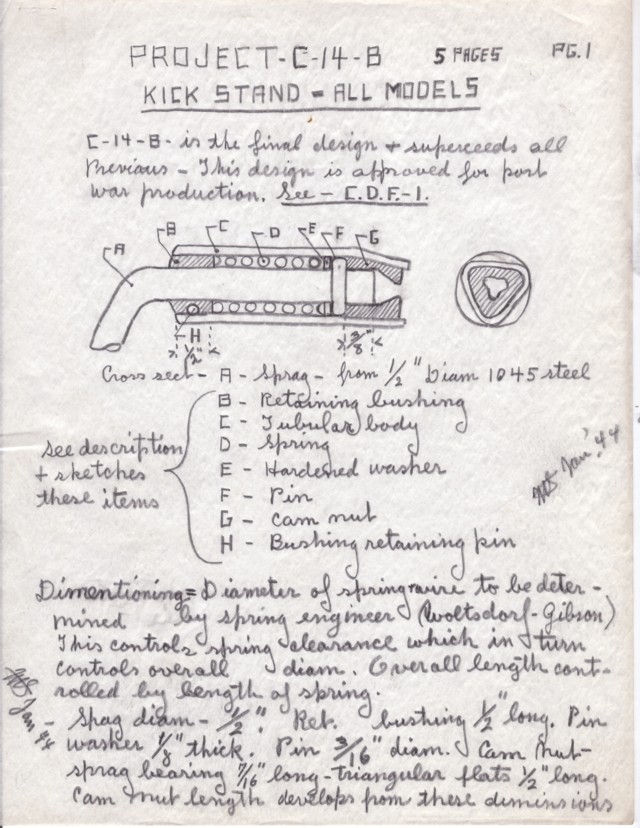 PROJECT-C-14-B 5 PAGES PG.1
KICK STAND = ALL MODELS
C-14-B- is the final design + superceeds all
Previous - This design is approved for post
war production. See - C.D.F-1.
A B C D E F G
H
1/2" 3/8"
Cross sect- A - Sprag - from 1/2" Diam 1045 steel
B - Retaining bushing
C - Tubular body
D - Spring
E - Hardened washer
F - Pin
G - Cam nut
H - Bushing retaining pin
see description
+ sketches
these items
Jan. '44
Dimentioning = Diameter of spring wire to be deter-
mined by spring engineer (Woltsdorf-Gibson)
This controls spring clearance which in turn
controls overall diam. Overall length cont-
rolled by length of spring.
Jan 44
- Spag diam - 1/2". Ret. bushing 1/2" long. Pin
washer 1/8" thick. Pin 3/16" diam. Cam Nut-
sprag bearing 7/16" long-triangular flats 1/2" long.
Cam nut length develops from these diminsions